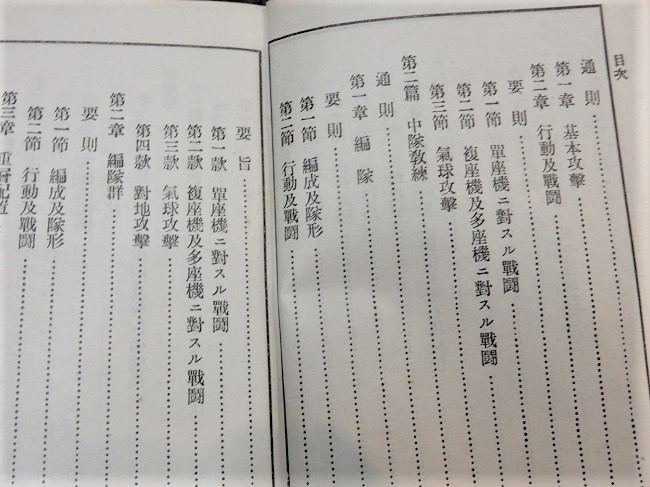 目次
通則
第一章 基本攻擊
第二章 行動及戰鬪
要則
第一節 單座機ニ對スル戰鬪
第二節 複座機及多座機ニ對スル戰鬪
第三節 氣球攻擊
第二篇 中隊敎練
通則
第一章 編隊
要則
第一節 編成及隊形
第二節 行動及戰鬪
要旨
第一款 單座機ニ對スル戰鬪
第二款 複座機及多座機ニ對スル戰鬪
第三款 氣球攻擊
第四款 對地攻擊
第二章 編隊群
要則
第一節 編成及隊形
第二節 行動及戰鬪
第三章 重層配置